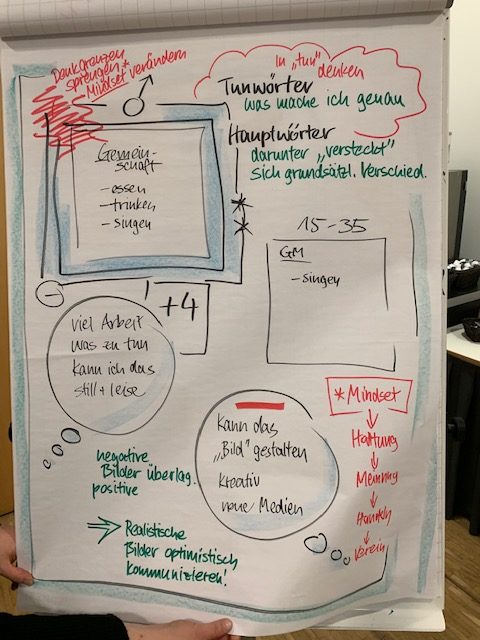 Denkgrenzen
sprengen *
Mindset verändern
In „tun"
denken
Tunwörter
was mache ich genau
Hauptwörter
darunter „versteckt"
sich grundsätzl. Verschied.
Gemein-
schaft
- essen
- trinken
- singen
+4
15-35
GM
- singen
viel Arbeit
was zu tun
kann ich das
still + leise
Kann das
„Bild" gestalten
kreativ
neue Medien
negative
Bilder überlag.
positive
Realistische
Bilder optimistisch
kommunizieren!
* Mindset
Haltung
Meinung
Handeln
Verein